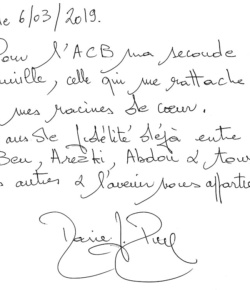 le 6/03/2019.
Pour l'ACB ma seconde
famille, celle qui me rattache
mes racines de coeur.
ans de fidélité déjà entre
Ben, Arezki, Abdou & tou
s autres & l'avenir nous appartie